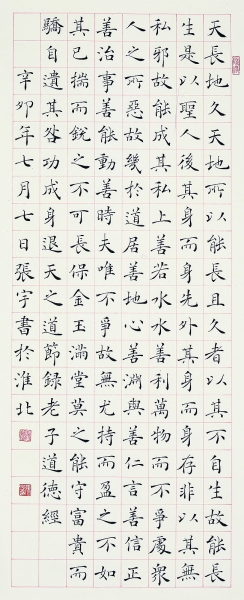 天長地久天地所以能長且久者以其不自生故能長
生是以聖人後其身而身先外其身而身存非以其無
私邪故能成其私上善若水水善利萬物而不爭處衆
人之所惡故幾於道居善地心善淵與善仁言善信正
善治事善能動善時夫唯不爭故無尤持而盈之不如
其已揣而銳之不可長保金玉滿堂莫之能守富貴而
驕自遺其咎功成身退天之道節録老子道德經
辛卯年七月七日張宇書於淮北